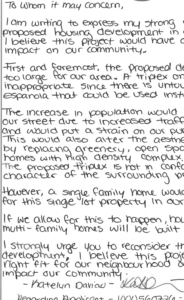 To whom it may concern,
I am writing to express my strong
proposed housing development in
I believe this project would have
impact on our community.
First and foremost, the proposed de
too large for our area. A triplex on
inappropriate since there is untou
espanola that could be used inst
The increase in population would
our street due to increased traff
and would put a strain on our pu
This would also alter the aesthe
by replacing greenery, open spac
homes with high density complex.
The proposed triplex is not in conf
character of the surrounding pr
However, a single family home wou
for this single lot property in our
If we allow for this to happen, ho
multi-family homes will be built
I strongly urge you to reconsider th
development. I believe this proj
right fit for our neighbourhood
impact our community.
- Katelyn